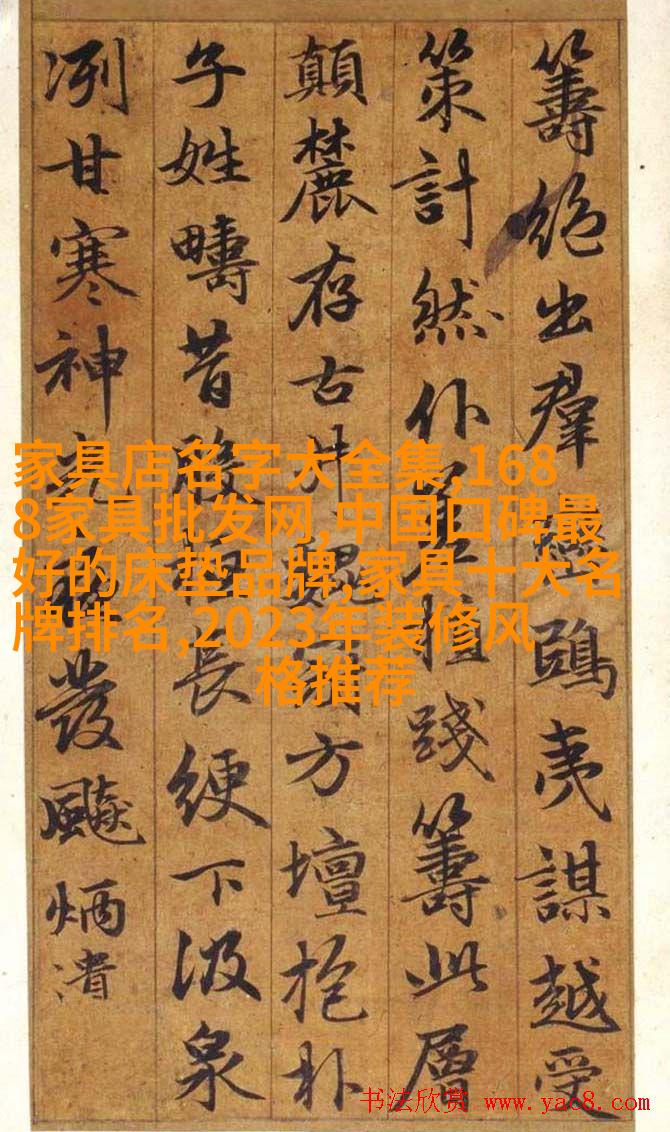 籌絕出羣鴟夷謀越受
策計然仆踐籌此層
顛麓存古井方壇抱朴
子姓疇昔長綆下汲泉
冽甘寒神發飈炳漬
家具店名字大全集,168
8家具批发网,中国口碑最
好的床垫品牌,家具十大名
牌排名,2023年装修风
格推荐
书法欣赏 www.yac8.com